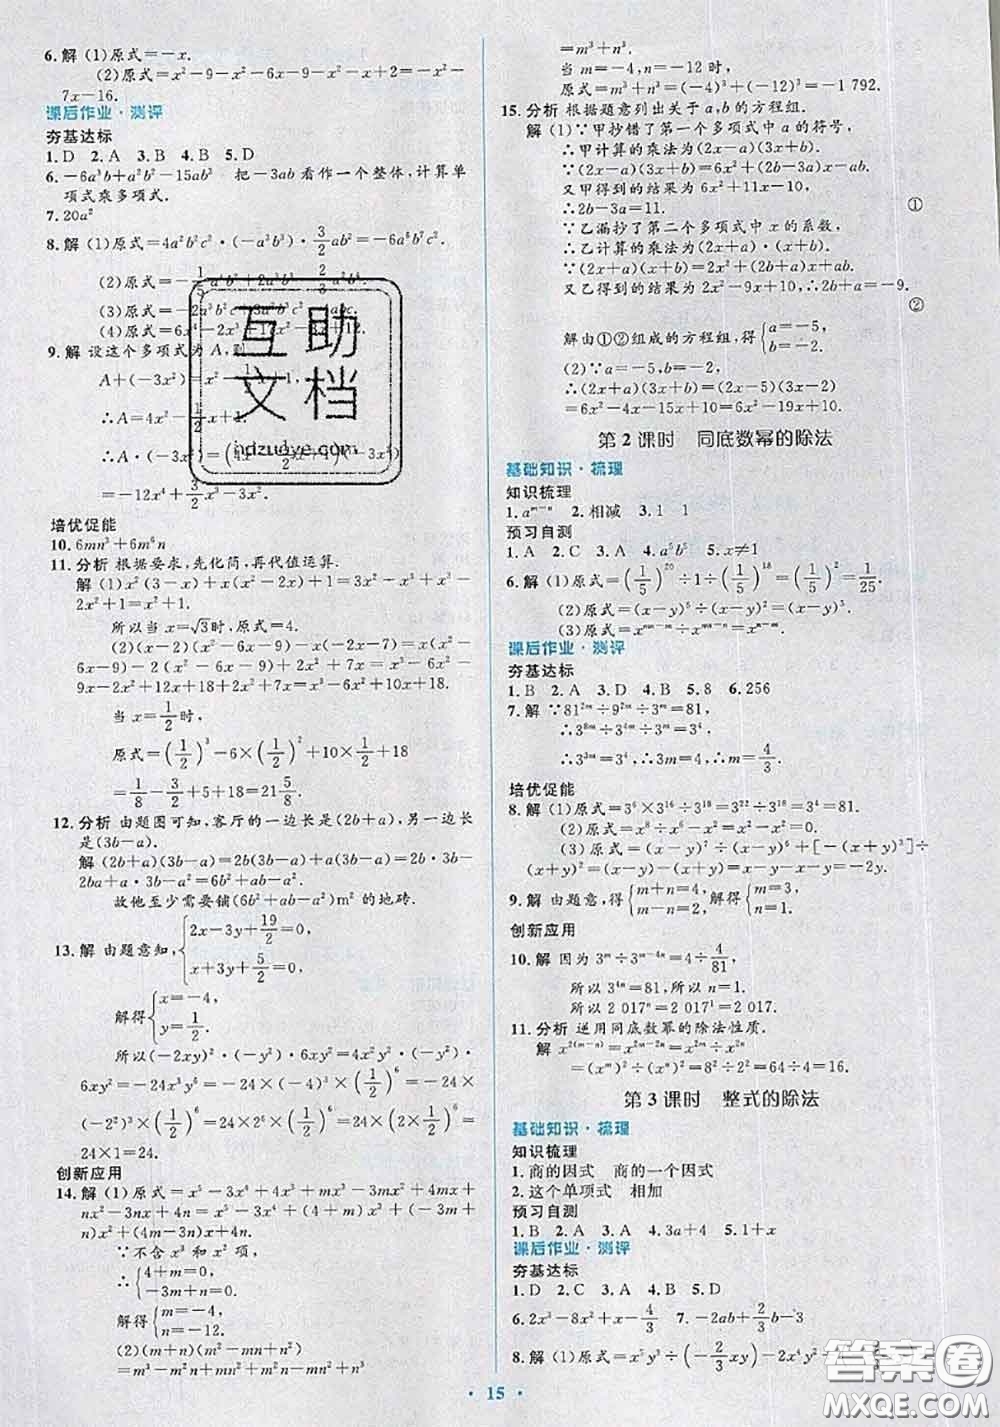 6.解 (1)原式=-x.
(2)原式=x²-9-x²-6x-9-x²-x+2=-x²-
7x-16.
课后作业·测评
夯基达标
1.D 2.A 3.B 4.B 5.D
6.-6a³b+a²b²-15ab² 把-3ab看作一个整体,计算单
项式乘多项式.
7.20a²
8.解 (1)原式=4a²b²c²·(-a³b³)·3/2ab²=-6a⁶b⁷c².
(3)原式=
(4)原式=6x⁴-2x³
9.解 设这个多项式为A,则
A+(-3x²)=x²
∴A=4x²-1/2x+1.
∴A·(-3x²)=
=-12x⁴+3/2x³-3x².
培优促能
10.6mn³+6m⁶n
11.分析 根据要求,先化简,再代值运算.
解 (1)x²(3-x)+x(x²-2x)+1=3x²-x³+x³-
2x²+1=x²+1.
所以当x=√3时,原式=4.
(2)(x-2)(x²-6x-9)-x(-2x-7)=x(x²-
6x-9)-2(x²-6x-9)+2x²+7x=x³-6x²-
9x-2x²+12x+18+2x²+7x=x³-6x²+10x+18.
当x=1/2时,
原式=(1/2)³-6×(1/2)²+10×1/2+18
=1/8-3/2+5+18=21 5/8.
12.分析 由题图可知,客厅的一边长是(2b+a),另一边长
是(3b-a).
解 (2b+a)(3b-a)=2b(3b-a)+a(3b-a)=2b·3b-
2ba+a·3b-a²=6b²+ab-a².
故他至少需要铺(6b²+ab-a²)m²的地砖.
13.解 由题意知,{2x-3y+19/2=0,
x+3y+5/2=0,
解得{x=-4,
y=1/2.
所以(-2xy)²·(-y²)·6xy²=4x²y²·(-y²)·
6xy²=-24x³y⁶=-24×(-4)³×(1/2)⁶=24×
4³×(1/2)⁶=24×2⁶×(1/2)⁶=24×(2×1/2)⁶=
24×1=24.
创新应用
14.解 (1)原式=x⁵-3x⁴+4x³+mx³-3mx²+4mx+
nx²-3nx+4n=x⁵-3x⁴+(4+m)x³+(-3m+
n)x²+(4m-3n)x+4n.
∵不含x³和x²项,
∴{4+m=0,
-3m+n=0,
解得{m=-4,
n=-12.
(2)(m+n)(m²-mn+n²)
=m³-m²n+mn²+m²n-mn²+n³
=m³+n³.
当m=-4,n=-12时,
原式=(-4)³+(-12)³=-1 792.
15.分析 根据题意列出关于a,b的方程组.
解 (1)∵甲抄错了第一个多项式中a的符号,
∴甲计算的乘法为(2x-a)(3x+b).
∵(2x-a)(3x+b)=6x²+(2b-3a)x-ab.
又甲得到的结果为6x²+11x-10,
∴2b-3a=11. ①
∵乙漏抄了第二个多项式中x的系数,
∴乙计算的乘法为(2x+a)·(x+b).
∵(2x+a)(x+b)=2x²+(2b+a)x+ab.
又乙得到的结果为2x²-9x+10,∴2b+a=-9.
②
解由①②组成的方程组,得{a=-5,
b=-2.
(2)∵a=-5,b=-2,
∴(2x+a)(3x+b)=(2x-5)(3x-2)
=6x²-4x-15x+10=6x²-19x+10.
第2课时 同底数幂的除法
基础知识·梳理
知识梳理
1.aᵐ⁻ⁿ 2.相减 3.1 1
预习自测
1.A 2.C 3.A 4.a⁵b⁵ 5.x≠1
6.解 (1)原式=(1/5)²⁰÷1÷(1/5)¹⁸=(1/5)²=1/25.
(2)原式=(x-y)⁵÷(x-y)²=(x-y)³.
课后作业·测评
夯基达标
1.B 2.A 3.D 4.B 5.8 6.256
7.解 ∵81²ᵐ÷9²ᵐ÷3ᵐ=81,
∴3⁸ᵐ÷3⁴ᵐ÷3ᵐ=3⁴,
∴3³ᵐ=3⁴,∴3m=4,∴m=4/3.
培优促能
8.解 (1)原式=3⁶×3¹⁶÷3¹⁸=3²²÷3¹⁸=3⁴=81.
9.解 由题意,得{m+n=4,
m-n=2,
解得{m=3,
n=1.
创新应用
10.解 因为3ᵐ÷3ᵐ⁻⁴ⁿ=4÷4/81,
所以3⁴ⁿ=81,所以n=1.
所以2 017ⁿ=2 017¹=2 017.
11.分析 逆用同底数幂的除法性质.
解 x²⁽ᵐ⁻ⁿ⁾=x²ᵐ⁻²ⁿ=x²ᵐ÷x²ⁿ
=(xᵐ)²÷(xⁿ)²=8²÷2²=64÷4=16.
第3课时 整式的除法
基础知识·梳理
知识梳理
1.商的因式 商的一个因式
2.这个单项式 相加
预习自测
1.B 2.A 3.A 4.3a+4 5.1+x
课后作业·测评
夯基达标
1.D 2.C 3.A 4.A 5.D
6.2x³-8x²+x-4/3 7.-2ab+2/3b-3
8.解 (1)原式=x⁵y³÷(-2/3xy)-2x⁴y
互助
文档
hdzuoye.com
答案圈
MXQE.COM
·15·